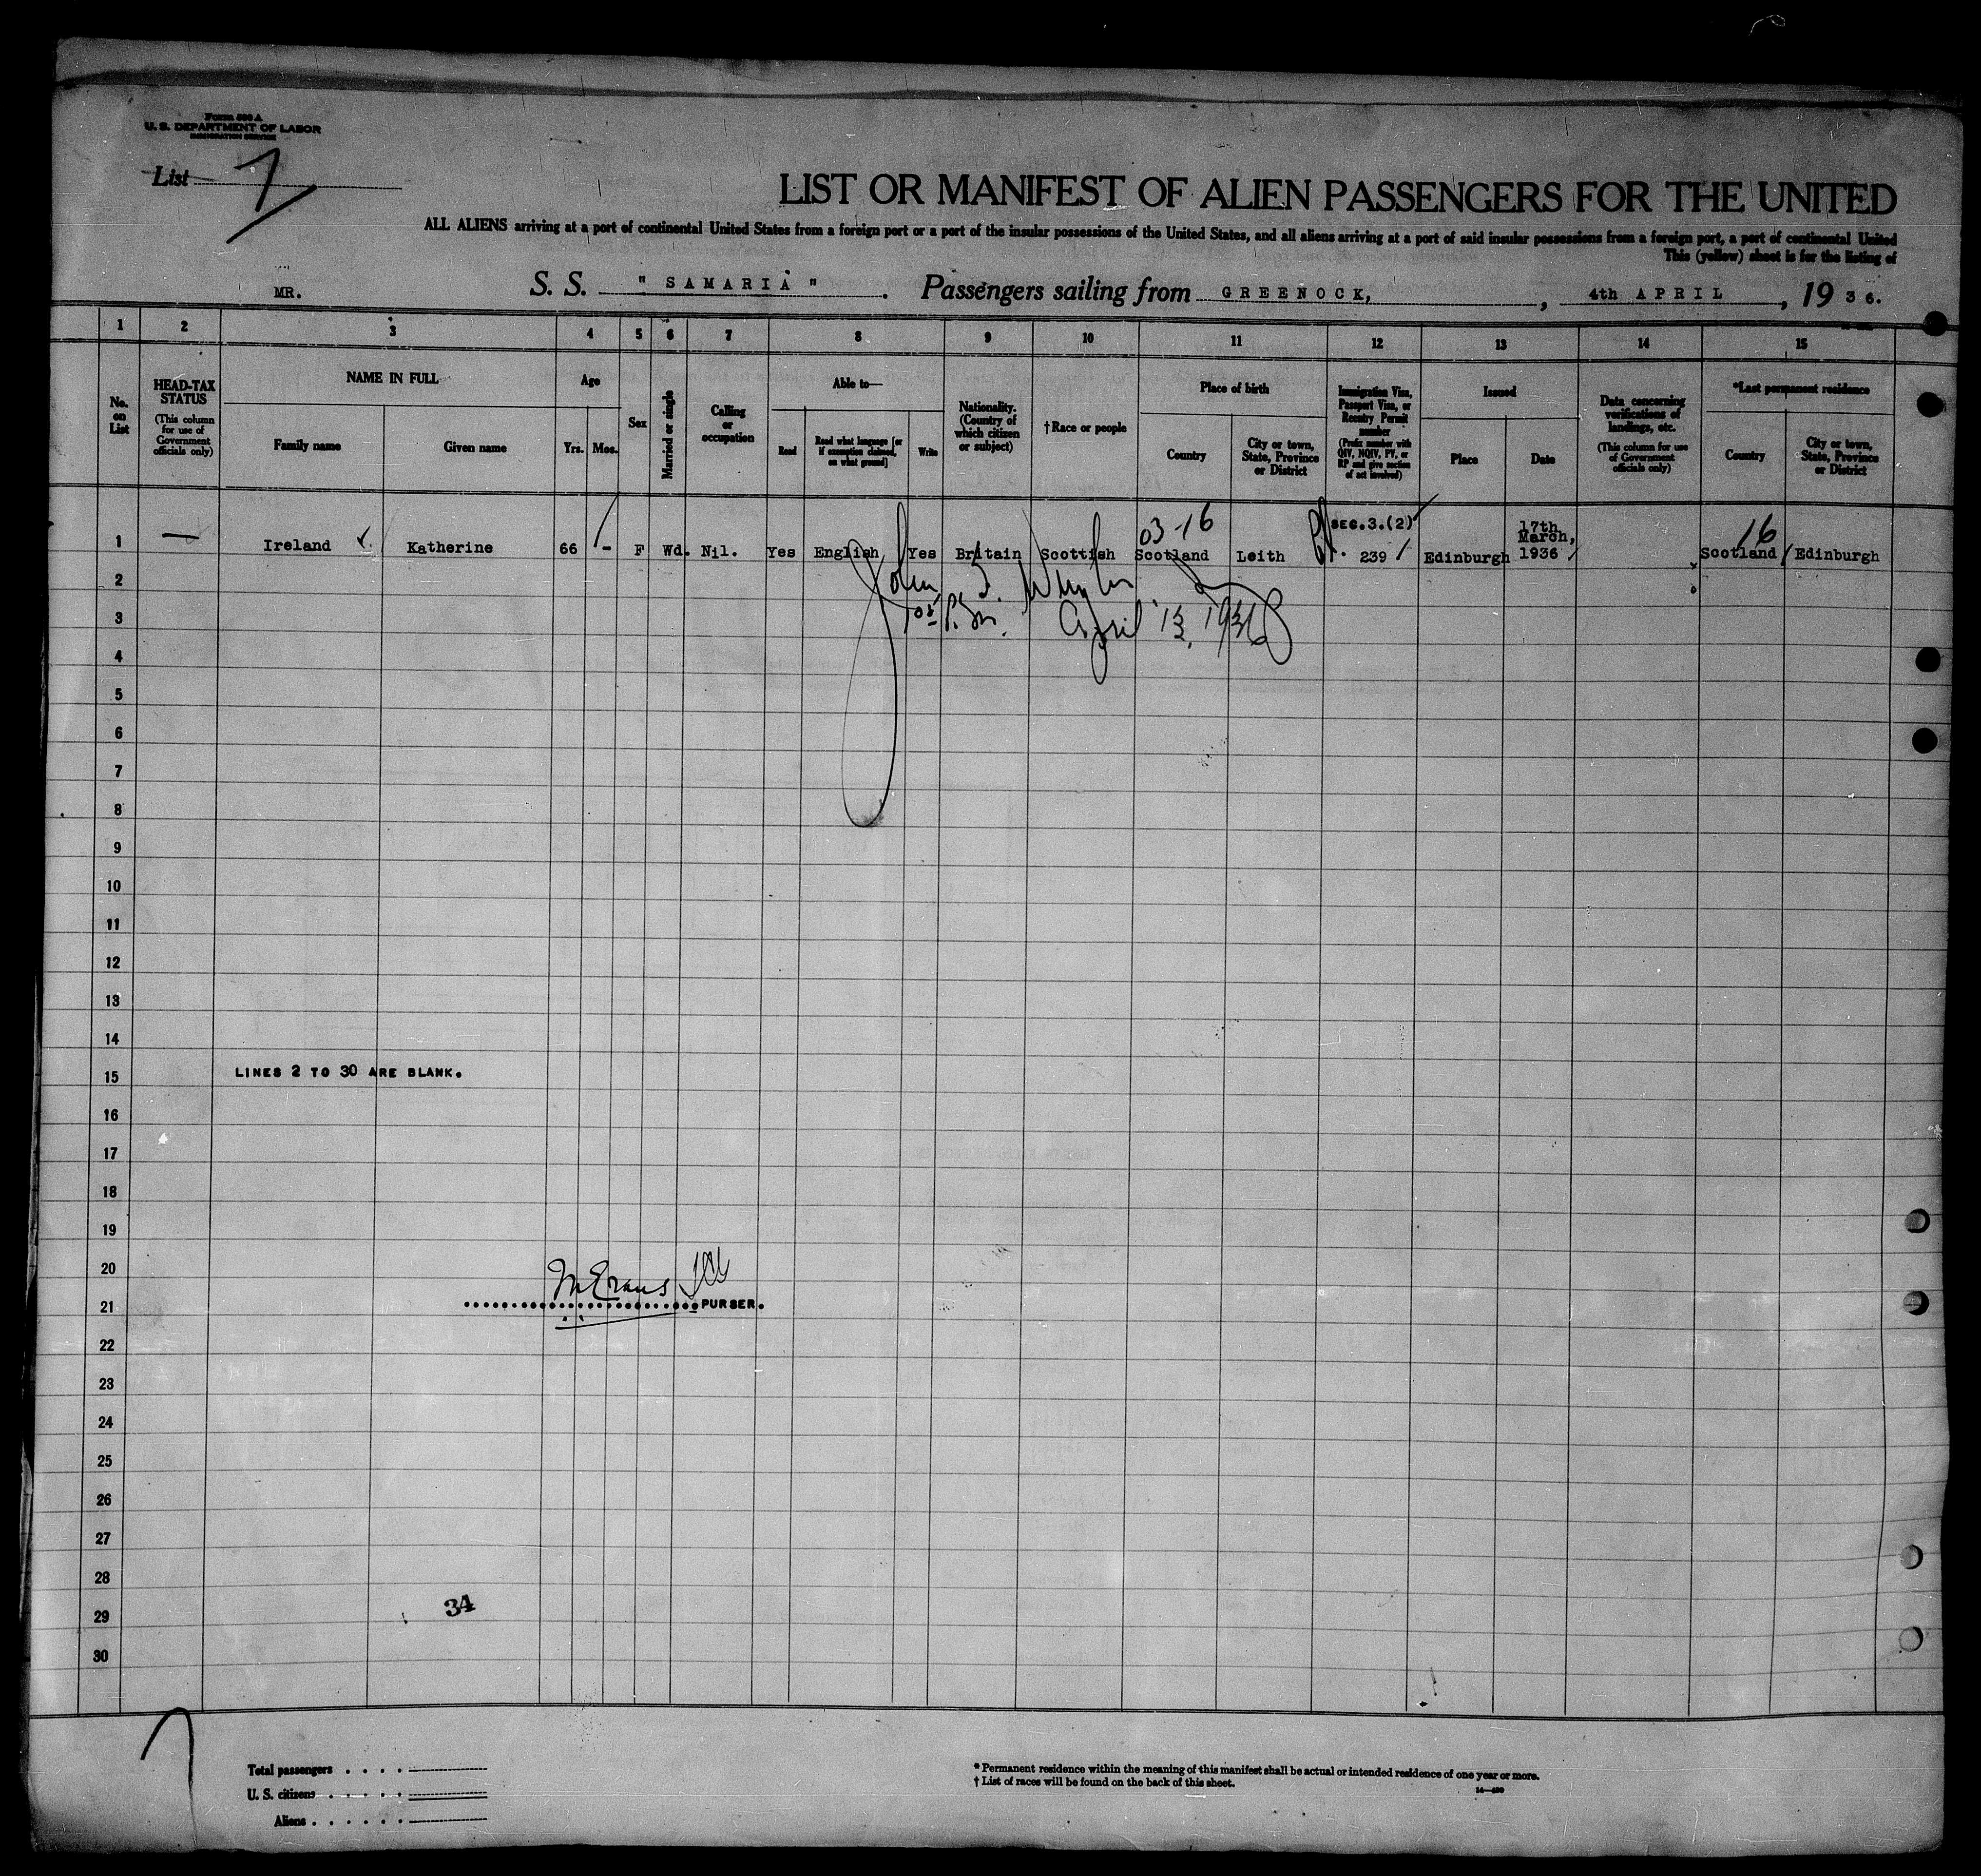 Form 500 A
U. S. DEPARTMENT OF LABOR
IMMIGRATION SERVICE
List 7
LIST OR MANIFEST OF ALIEN PASSENGERS FOR THE UNITED
ALL ALIENS arriving at a port of continental United States from a foreign port or a port of the insular possessions of the United States, and all aliens arriving at a port of said insular possessions from a foreign port, a port of continental United
This (yellow) sheet is for the listing of
MR. S. S. " SAMARIA ". Passengers sailing from GREENOCK, , 4th APRIL , 1936.
1 2 3 4 5 6 7 8 9 10 11 12 13 14 15
No. on List
HEAD-TAX STATUS (This column for use of Government officials only)
NAME IN FULL
Family name Given name
Age
Yrs. Mos.
Sex
Married or single
Calling or occupation
Able to—
Read Read what language [or if exemption claimed, on what ground] Write
Nationality. (Country of which citizen or subject)
†Race or people
Place of birth
Country City or town, State, Province or District
Immigration Visa, Passport Visa, or Reentry Permit number (Prefix number with QIV, NQIV, PV, or RP and give section of act involved)
Issued
Place Date
Data concerning verifications of landings, etc. (This column for use of Government officials only)
*Last permanent residence
Country City or town, State, Province or District
03-16 SEC.3.(2) 17th March, 16
1 — Ireland Katherine 66 - F Wd. Nil. Yes English Yes Britain Scottish Scotland Leith 239 Edinburgh 1936 Scotland Edinburgh
2
John
3
April 13, 1936
4
5
6
7
8
9
10
11
12
13
14
15 LINES 2 TO 30 ARE BLANK.
16
17
18
19
20
M Evans
21 PURSER.
22
23
24
25
26
27
28
29 34
30
Total passengers
U. S. citizens
Aliens
* Permanent residence within the meaning of this manifest shall be actual or intended residence of one year or more.
† List of races will be found on the back of this sheet.